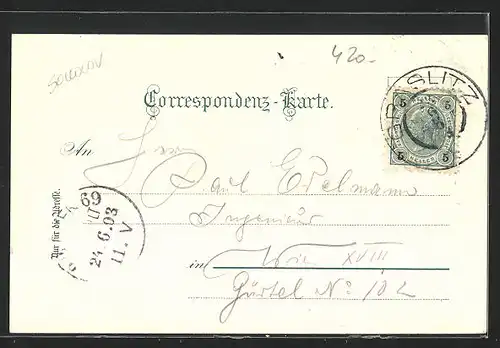 420.-
SOKOLOV
Correspondenz-Karte.
SLITZ
5 5
5 5
An Herrn
Paul Edelmann
Ingenieur
in Wien XVIII
Gürtel No 102
Nur für die Adresse.
69
24.6.03
11.V